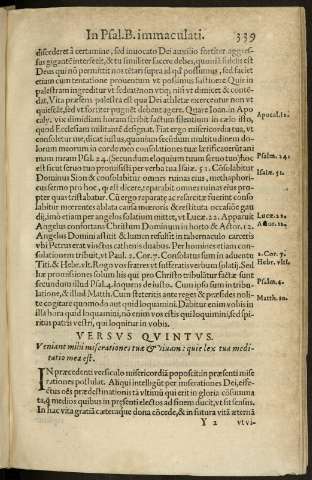 In Psal. B. immaculati. 339
discederet à certamine, sed inuocato Dei auxilio fortiter aggres-
sus gigantē interfecit, & tu similiter facere debes, quoniā fidelis est
Deus qui nō permittit nos tētari supra id qd possumus, sed faciet
etiam cum tentatione prouentum vt possimus sustinere: Quia in
palestram ingreditur vt sedeat nō otiosus, nisi vt dimicet & conté-
dat. Vita præsens palestra est qua Dei athletæ exercentur non vt
quiescāt, sed vt fortiter pugnēt debent agere. Quare Ioan. in Apo
caly. vix dimidiam horam scribit factum silentium in cælo isto,
quod Ecclesiam militantē designat. Fiat ergo misericordia tua, vt
consoletur me, dicat iustus, quoniam secundum multitudinem do-
lorum meorum in corde meo consolationes tuæ lætificauerunt ani
mam meam Psal. 24. (Secundum eloquium tuum seruo tuo) hoc
est sicut seruo tuo promisisti per verba tua Isaiæ. 51. Cōsolabitur
Dominus Sion & consolabitur omnes ruinas eius, methaphori-
cus sermo pro hoc, qd est dicere, reparabit omnes ruinas eius pro-
pter quas tristabatur. Cū ergo reparatæ ac resarcitæ fuerint conso
labitur mœrentes ablata causa mœroris & restituta occasiōe gau
dij, imò etiam per angelos solatium mittet, vt Lucæ. 22. Apparuit
Angelus confortans Christum Dominum in horto & Actor. 12.
Angelus Domini astitit & lumen refulsit in tabernaculo carceris
vbi Petrus erat vinctus cathenis duabus. Per homines etiam con-
solationem tribuit, vt Paul. 2. Cor. 7. Consolatus sum in aduentu
Titi. & Hebr. vlt. Rogo vos fratres vt sufferatis verbum solatij. Sed
hæ promissiones solum his qui pro Christo tribulātur factæ sunt
secundum illud Psal. 4. loquens de iusto. Cum ipso sum in tribu-
latione, & illud Matth. Cum steteritis ante reges & præsides noli-
te cogitare quomodo aut quid loquamini. Dabitur enim vobis in
illa hora quid loquamini, nō enim vos estis qui loquimini, sed spi-
ritus patris vestri, qui loquitur in vobis.
Apocal. 12.
Psalm. 24.
Isaiæ. 51.
Lucæ. 22.
Actor. 12.
2. Cor. 7.
Hebr. vlti.
Psalm. 4.
Matth. 10.
VERSVS QVINTVS.
Veniant mihi miserationes tuæ & viuam: quia lex tua medi-
tatio mea est.
IN præcedenti versiculo misericordiā poposcit in præsenti mise
rationes postulat. Aliqui intelligūt per miserationes Dei, effe-
ctus oēs prædestinationis tā vltimū qui erit in gloria cōsumma
ta, qd medios quibus in præsenti electos ad finem ducit, vt sit sensus.
In hac vita gratiā cæteraque dona cōcede, & in futura vitā æternā
Y 2 vtvi-